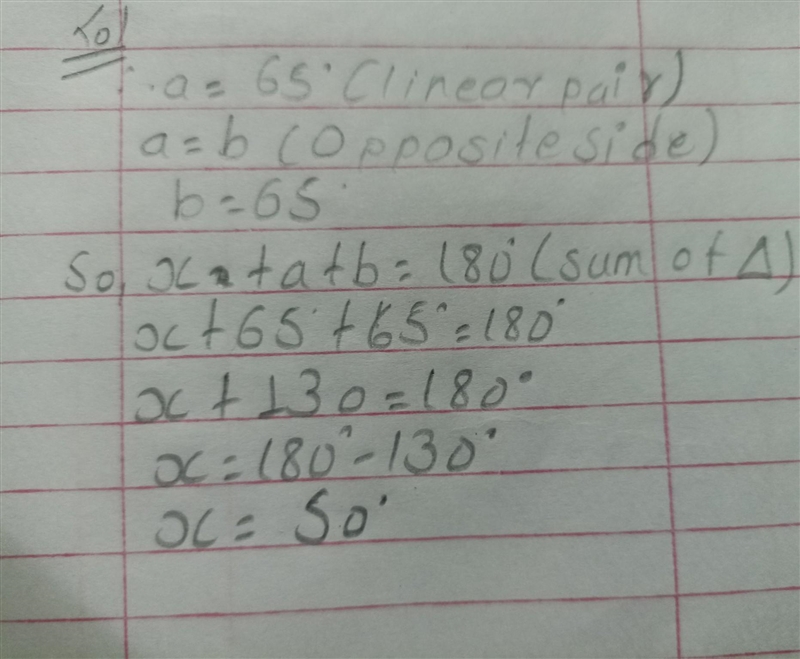 Sol
∴ a = 65° (linear pair)
a = b (Opposite side)
b = 65°
So, x + a + b = 180° (sum of Δ)
x + 65° + 65° = 180°
x + 130 = 180°
x = 180° - 130°
x = 50°